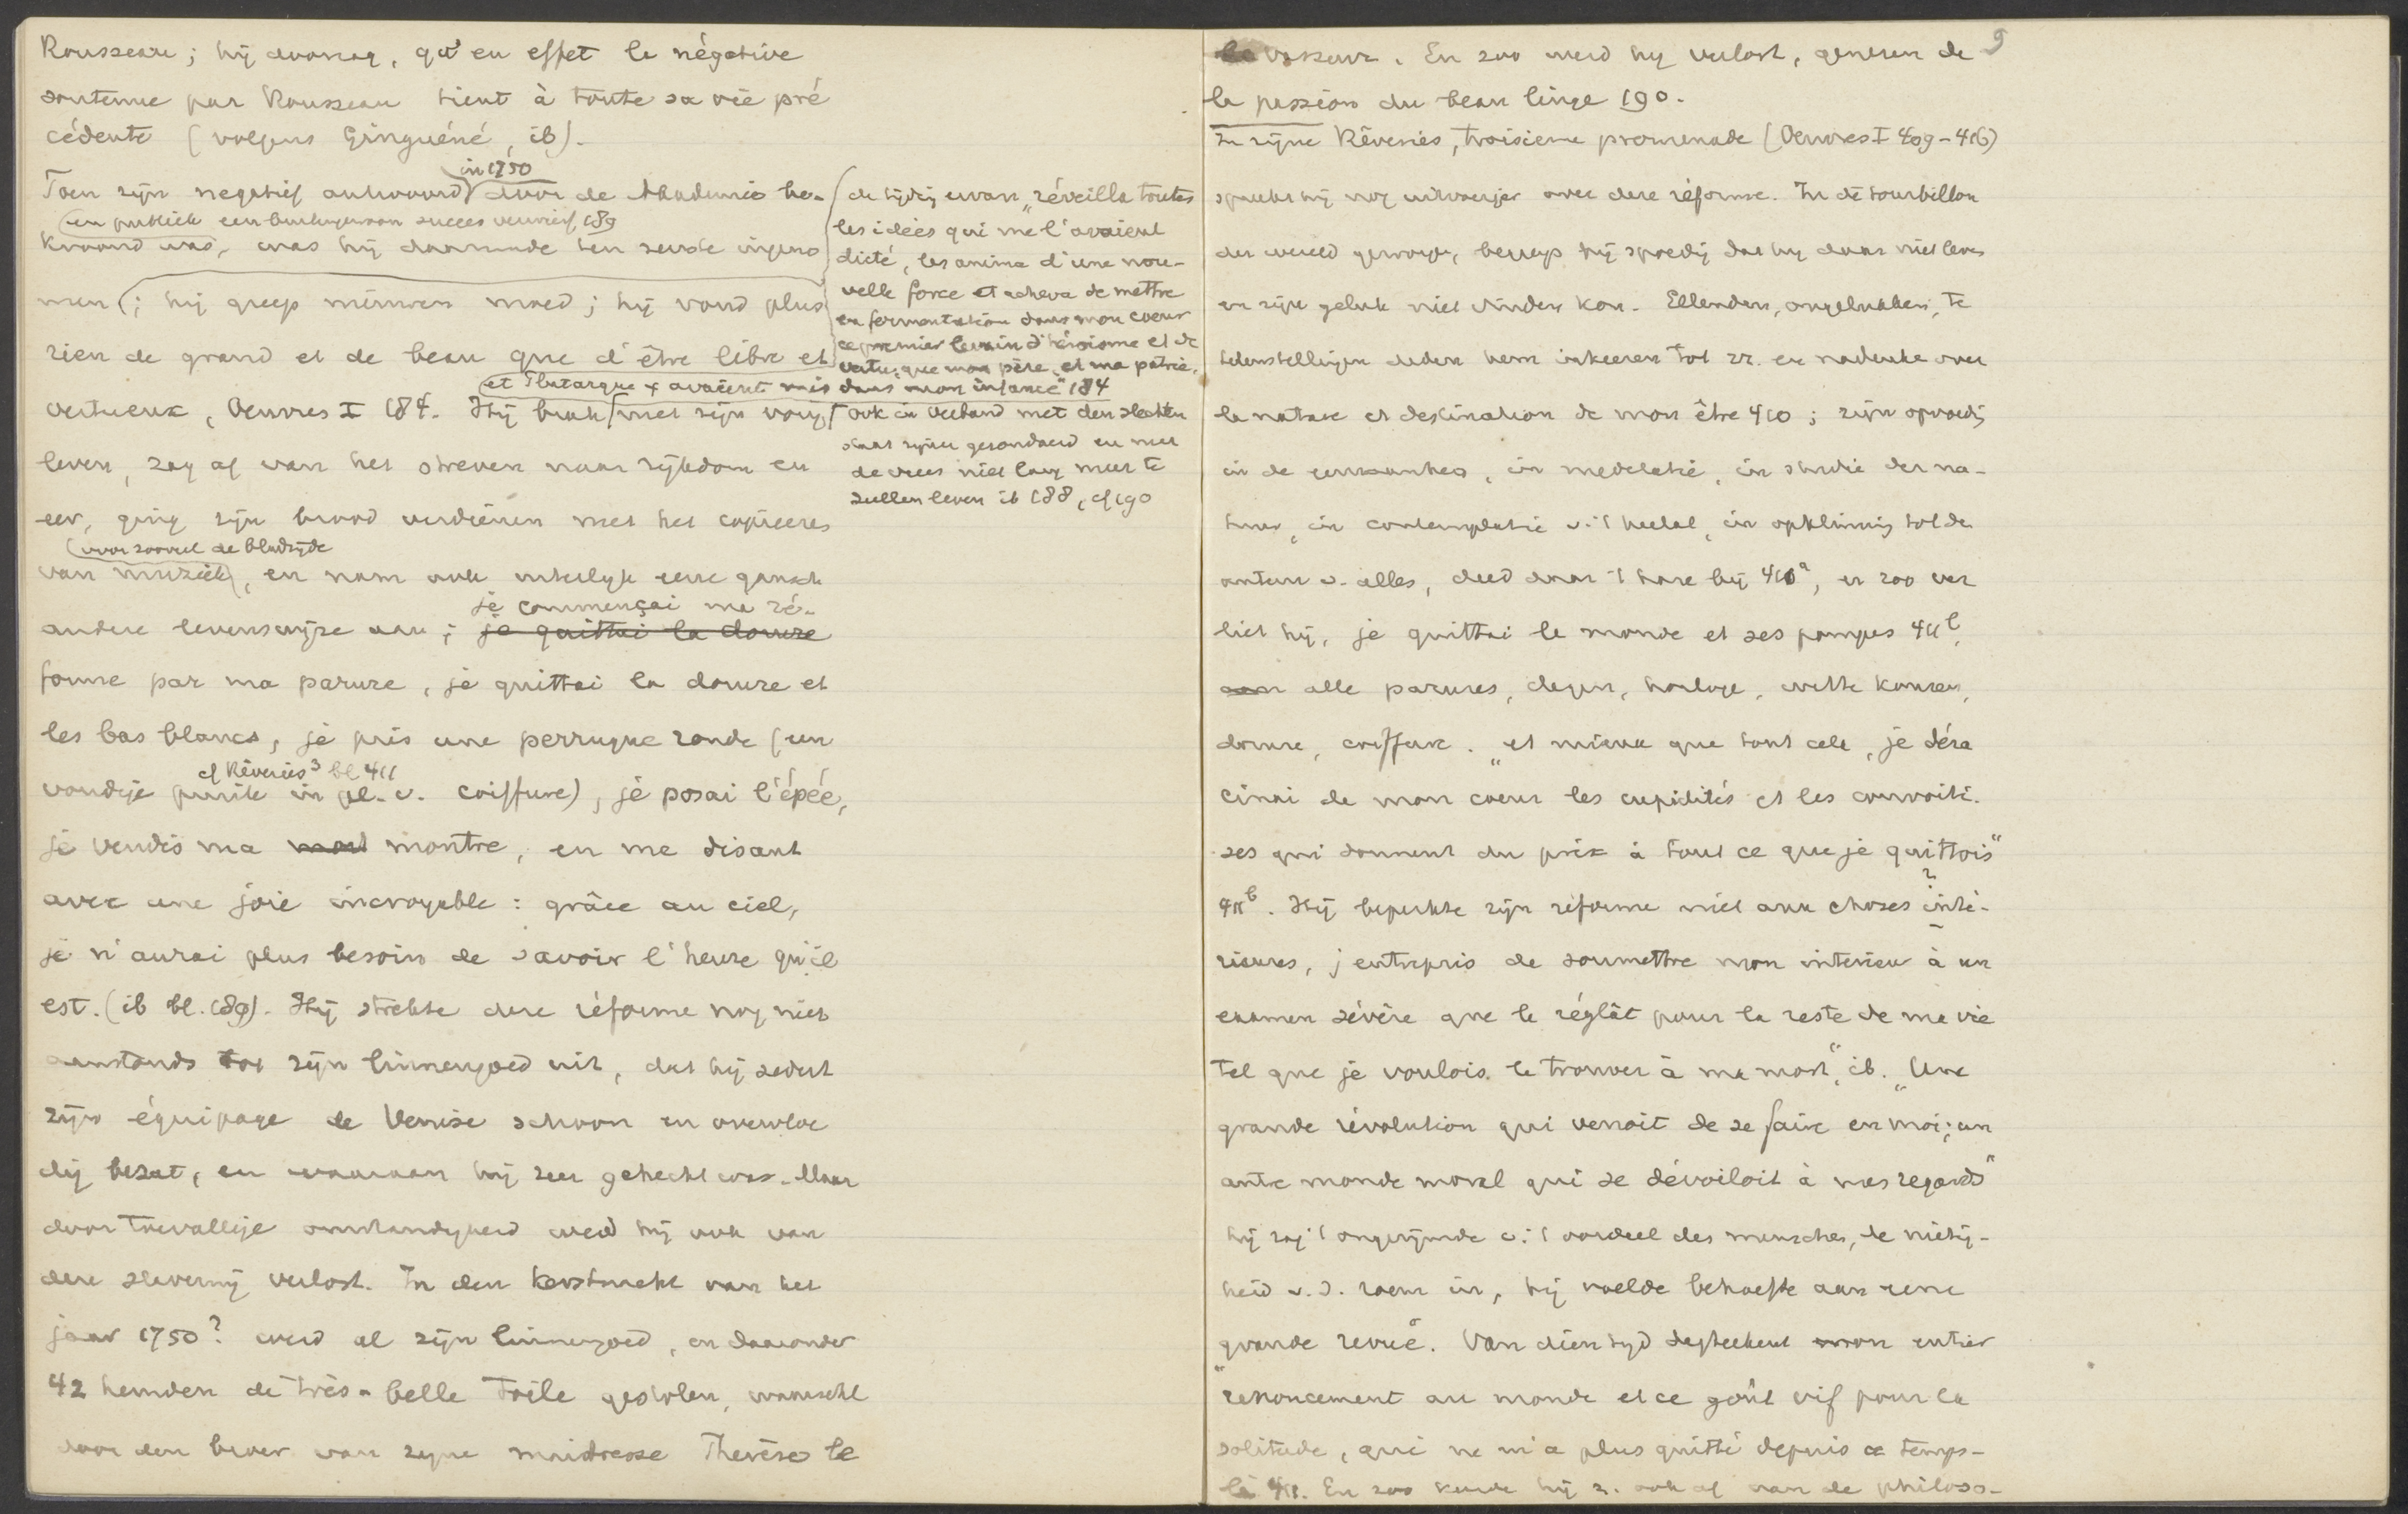 Rousseau; hij avoneg, qu'en effet la négative
soutenue par Rousseau tient à toute sa vie pré
cédente (volgens Ginguéné, ib).
in 1750
Toen zijn negatief antwoord door de Akademie be-
en publiek een buitengewoon succes verwierf, 189
kroond was, was hij daarmede ten zeerste ingeno
men; hij greep nieuwen moed; hij vond plus
rien de grand et de beau que d'être libre et
vertueux, Oeuvres I 184. Hij brak met zijn vorig
leven, zag af van het streven naar rijkdom en
eer, ging zijn brood verdienen met het copieeren
voor zooveel de bladzijde
van muziek, en nam ook uiterlijk eene gansch
je commençai ma ré-
andere levenswijze aan; je quittai la dorure
forme par ma parure, je quittai la dorure et
les bas blancs, je pris une perruque ronde (een
cf Rêveries³ bl 411
voudige pruik in pl. v. coiffure), je posai l'épée,
je vendis ma montre, en me disant
avec une joie incroyable: grâce au ciel,
je n'aurai plus besoin de savoir l'heure qu'il
est. (ib bl. 189). Hij strekte deze réforme nog niet
aanstonds tot zijn linnengoed uit, dat hij sedert
zijn équipage de Venise schoon en overvloe
dig bezat, en waaraan hij zeer gehecht was. Maar
door toevallige omstandigheid werd hij ook van
deze slavernij verlost. In den kerstnacht van het
jaar 1750? werd al zijn linnengoed, en daaronder
42 hemden de très-belle toile gestolen, waarschl
door den broer van zijne maitresse Therèse le
de tijding ervan "réveilla toutes
les idées qui me l'avaient
dicté, les anima d'une nou-
velle force et acheva de mettre
en fermentation dans mon coeur
ce premier levain d'héroisme et de
vertu, que mon père, et ma patrie,
et Plutarque y avaient mis dans mon enfance" 184
ook in verband met den slechten
staat zijner gezondheid en met
de vrees niet lang meer te
zullen leven ib 188, cf 190
9
le vasseur. En zoo werd hij verlost, genezen de
la passion du beau linge 190.
In zijne Rêveries, troisieme promenade (Oeuvres I 409-416)
spreekt hij nog uitvoeriger over deze réforme. In de tourbillon
der wereld geworpen, begreep hij spoedig dat hij daar niet leven
en zijn geluk niet vinden kon. Ellenden, ongelukken, te
leurstellingen deden hem inkeeren tot zz. en nadenken over
la nature et destination de mon être 410; zijn opvoedg
in de eenzaamheid, in meditatie, in studie der na-
tuur, in contemplatie v. 't heelal, in opklimming tot den
auteur v. alles, deed daar 't hare bij 410ª, en zoo ver
liet hij, je quittai le monde et ses pompes 411ᵇ,
alle parures, degen, horloge, witte kousen,
dorure, coiffure. "et mieux que tout cela, je déra
cinai de mon coeur les cupidités et les convoiti-
ses qui donnent du prix à tout ce que je quittois"
411ᵇ. Hij beperkte zijn réforme niet aux choses ?inté-
rieures, j entrepris de soumettre mon interieur à un
examen sévère que le réglât pour le reste de ma vie
tel que je voulois le trouver à ma mort", ib. "Une
grande révolution qui venoit de se faire en moi; un
autre monde moral qui se dévoiloit à mes regards"
hij zag 't ongerijmde v. 't oordeel der menschen, de nietig-
heid v. d. roem in, hij voelde behoefte aan eene
grande revue. Van dien tijd dagteekent mon entier
"renoncement au monde et ce goût vif pour la
solitude, qui ne m'a plus quitté depuis ce temps-
là 411. En zoo keerde hij z. ook af van de philoso-